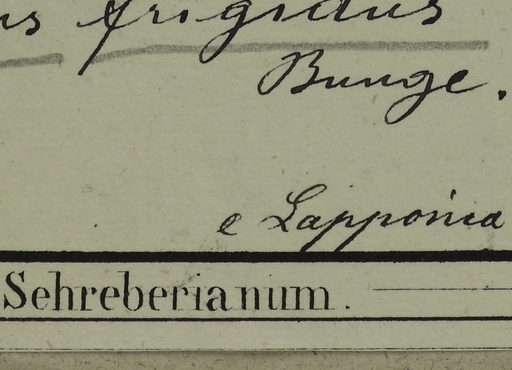 us frigidus
Bunge.
e Lapponica
Sehreberianum.